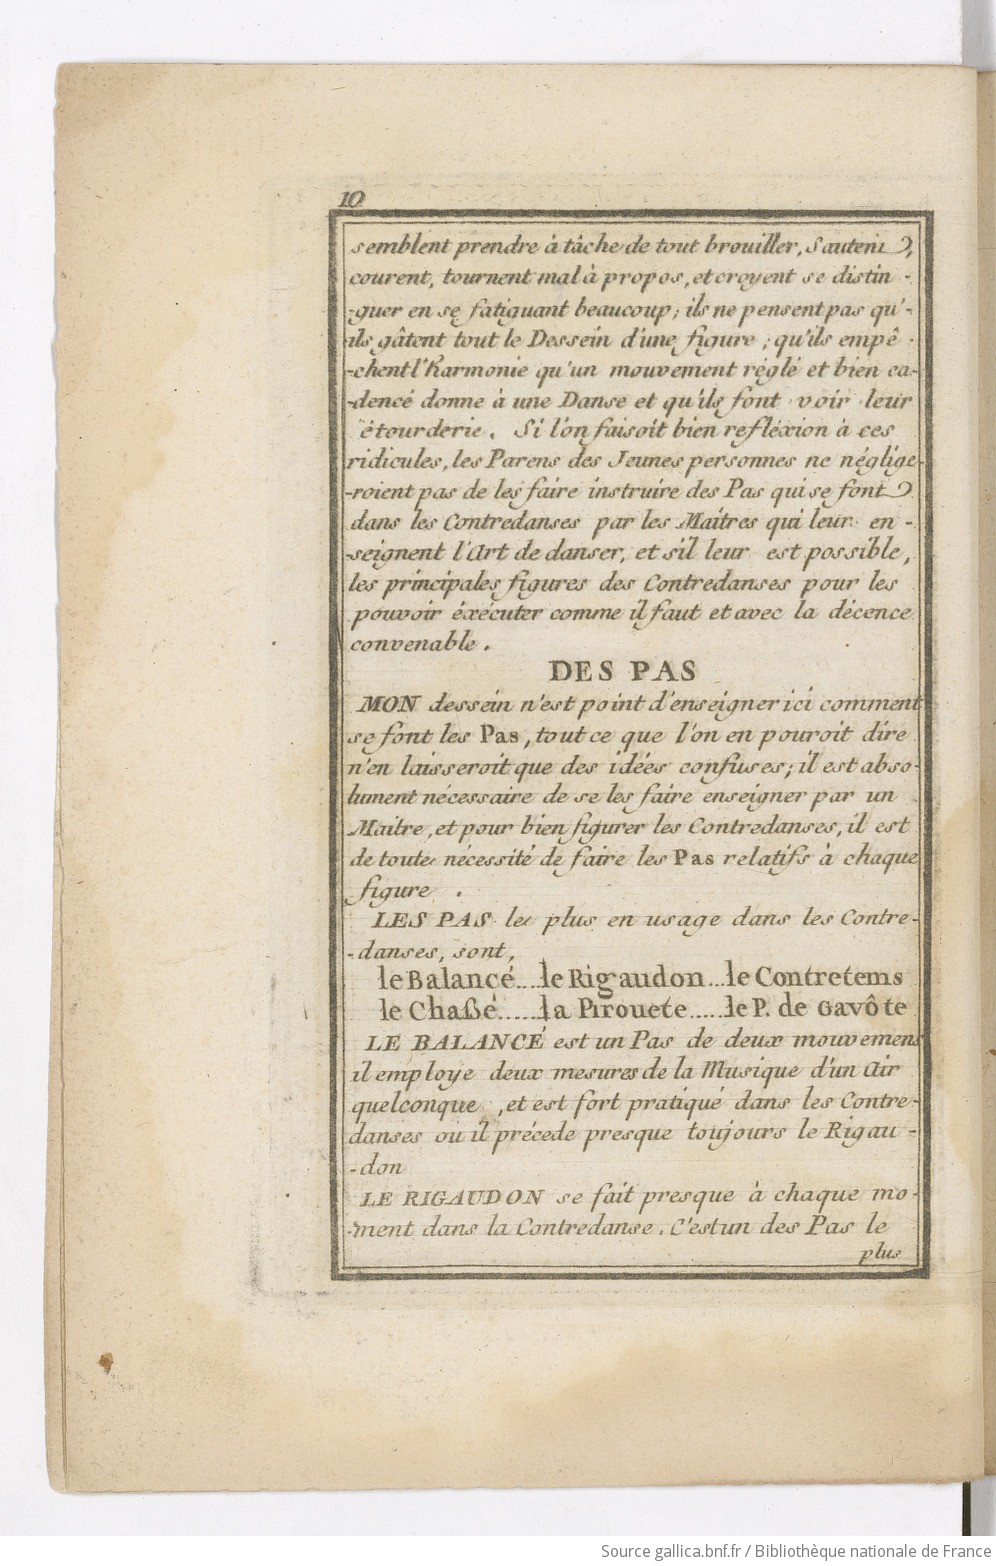 10
semblent prendre à tâche de tout brouiller, Sautent,
courent, tournent mal à propos, et croyent se distin-
-guer en se fatiguant beaucoup; ils ne pensent pas qu'-
ils gâtent tout le Dessein d'une figure; qu'ils empê-
-chent l'Harmonie qu'un mouvement réglé et bien ca-
-dencé donne à une Danse et qu'ils font voir leur
étourderie. Si l'on faisoit bien refléxion à ces
ridicules, les Parens des Jeunes personnes ne néglige-
-roient pas de les faire instruire des Pas qui se font
dans les Contredanses par les Maîtres qui leur en-
-seignent l'Art de danser, et s'il leur est possible,
les principales figures des Contredanses pour les
pouvoir éxécuter comme il faut et avec la décence
convenable.
DES PAS
MON dessein n'est point d'enseigner ici comment
se font les Pas, tout ce que l'on en pouroit dire
n'en laisseroit que des idées confuses; il est abso-
lument nécessaire de se les faire enseigner par un
Maître, et pour bien figurer les Contredanses, il est
de toute nécessité de faire les Pas relatifs à chaque
figure.
LES PAS le plus en usage dans les Contre-
-danses, sont,
le Balancé....le Rigaudon...le Contretems
le Chaßé......la Pirouete.....le P. de Gavôte
LE BALANCÉ est un Pas de deux mouvemens
il employe deux mesures de la Musique d'un Air
quelconque, et est fort pratiqué dans les Contre-
danses où il précede presque toujours le Rigau-
-don
LE RIGAUDON se fait presque à chaque mo-
-ment dans la Contredanse. C'est un des Pas le
plus
Source gallica.bnf.fr / Bibliothèque nationale de France